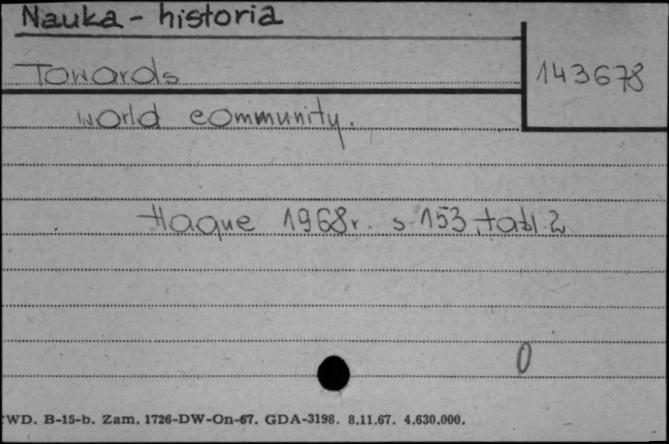 Nauka - historia
Towards
143678
world community.
Haque 1968r. s. 153, tabl. 2
0
WD. B-15-b. Zam. 1726-DW-On-67. GDA-3198. 8.11.67. 4.630.000.